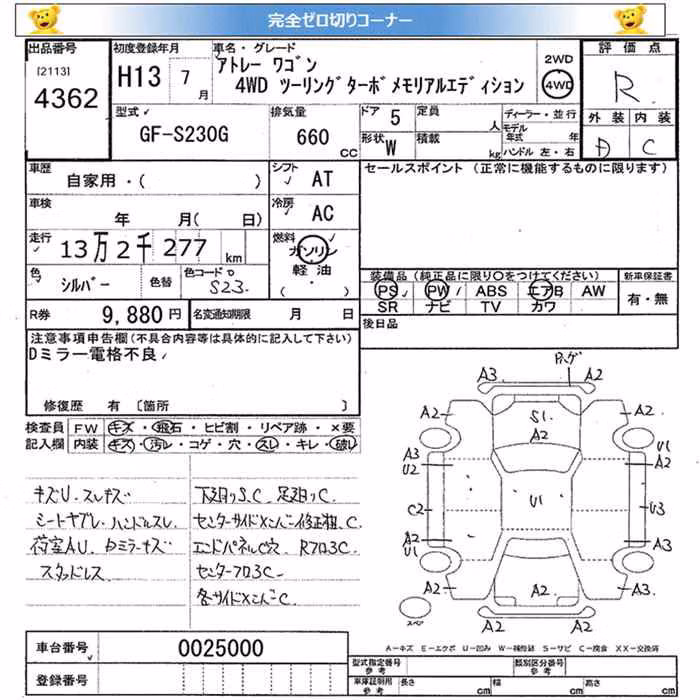 完全ゼロ切りコーナー
出品番号
[2113]
4362
初度登録年月
H13 7月
車名・グレード
アトレー ワゴン
4WD ツーリングターボメモリアルエディション
2WD
4WD
評価点
R
外装 内装
D C
型式
GF-S230G
排気量
660 CC
ドア 5
形状 W
定員 人
積載 kg
ディーラー・並行
モデル年式 年
ハンドル 左・右
車歴
自家用・( )
シフト AT
車検
年 月( 日)
冷房 AC
走行
13万2千277 km
燃料
ガソリン
軽油
( )
色
シルバー
色替
色コードNo
S23
R券 9,880円
名変通知期限 月 日
セールスポイント (正常に機能するものに限ります)
装備品 (純品に限り○をつけてください)
PS PW ABS エアB AW
SR ナビ TV カワ
新車保証書
有・無
後日品
注意事項申告欄(不具合内容等は具体的に記入して下さい)
Dミラー電格不良
修復歴 有 [箇所 ]
検査員記入欄
FW キズ・飛石・ヒビ割・リペア跡・×要
内装 キズ・汚レ・コゲ・穴・スレ・キレ・破レ
キズU.スレキズ
シートヤブレ.ハンドルスレ
荷室AU.Dミラーキズ
スタッドレス
下廻りS.C 足廻りC.
センターサイドメンバー修正租.C
エンドパネルC穴 Rフロ3C
センターフロ3C
各サイドメンバーC
A3 A2
A2 S1 A2 A2
A3 U2 A2 U1 A2
C2 U1 U3
A2 U1 A2 A3
A2 A2 A3
A2 A2
スペア
A-キズ E-エクボ U-凹み W-補修跡 S-サビ C-腐食 XX-交換済
車台番号 0025000
登録番号
型式指定番号 参考
類別区分番号 参考
車庫証明用 参考
長さ cm 幅 cm 高さ cm